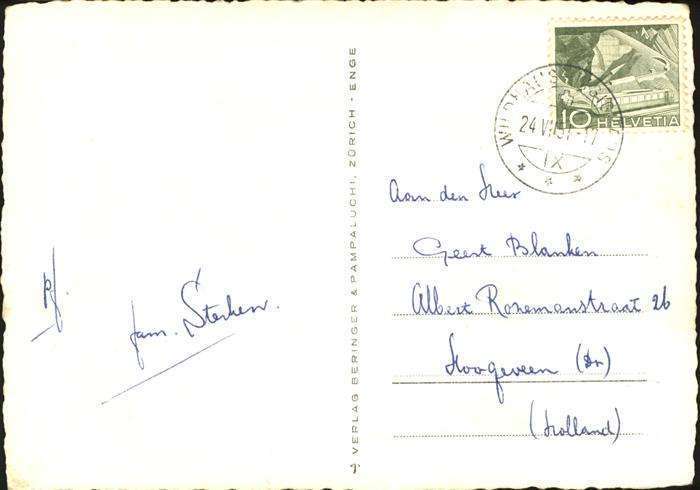 pf.
fam. Sterken.
VERLAG BERINGER & PAMPALUCHI, ZÜRICH - ENGE
10 HELVETIA
WILDHAUS
24 VII 51 - 17
IX
Aan den Heer
Geert Blanken
Albert Rosemanstraat 26
Hoogeveen (Dr)
(Holland)